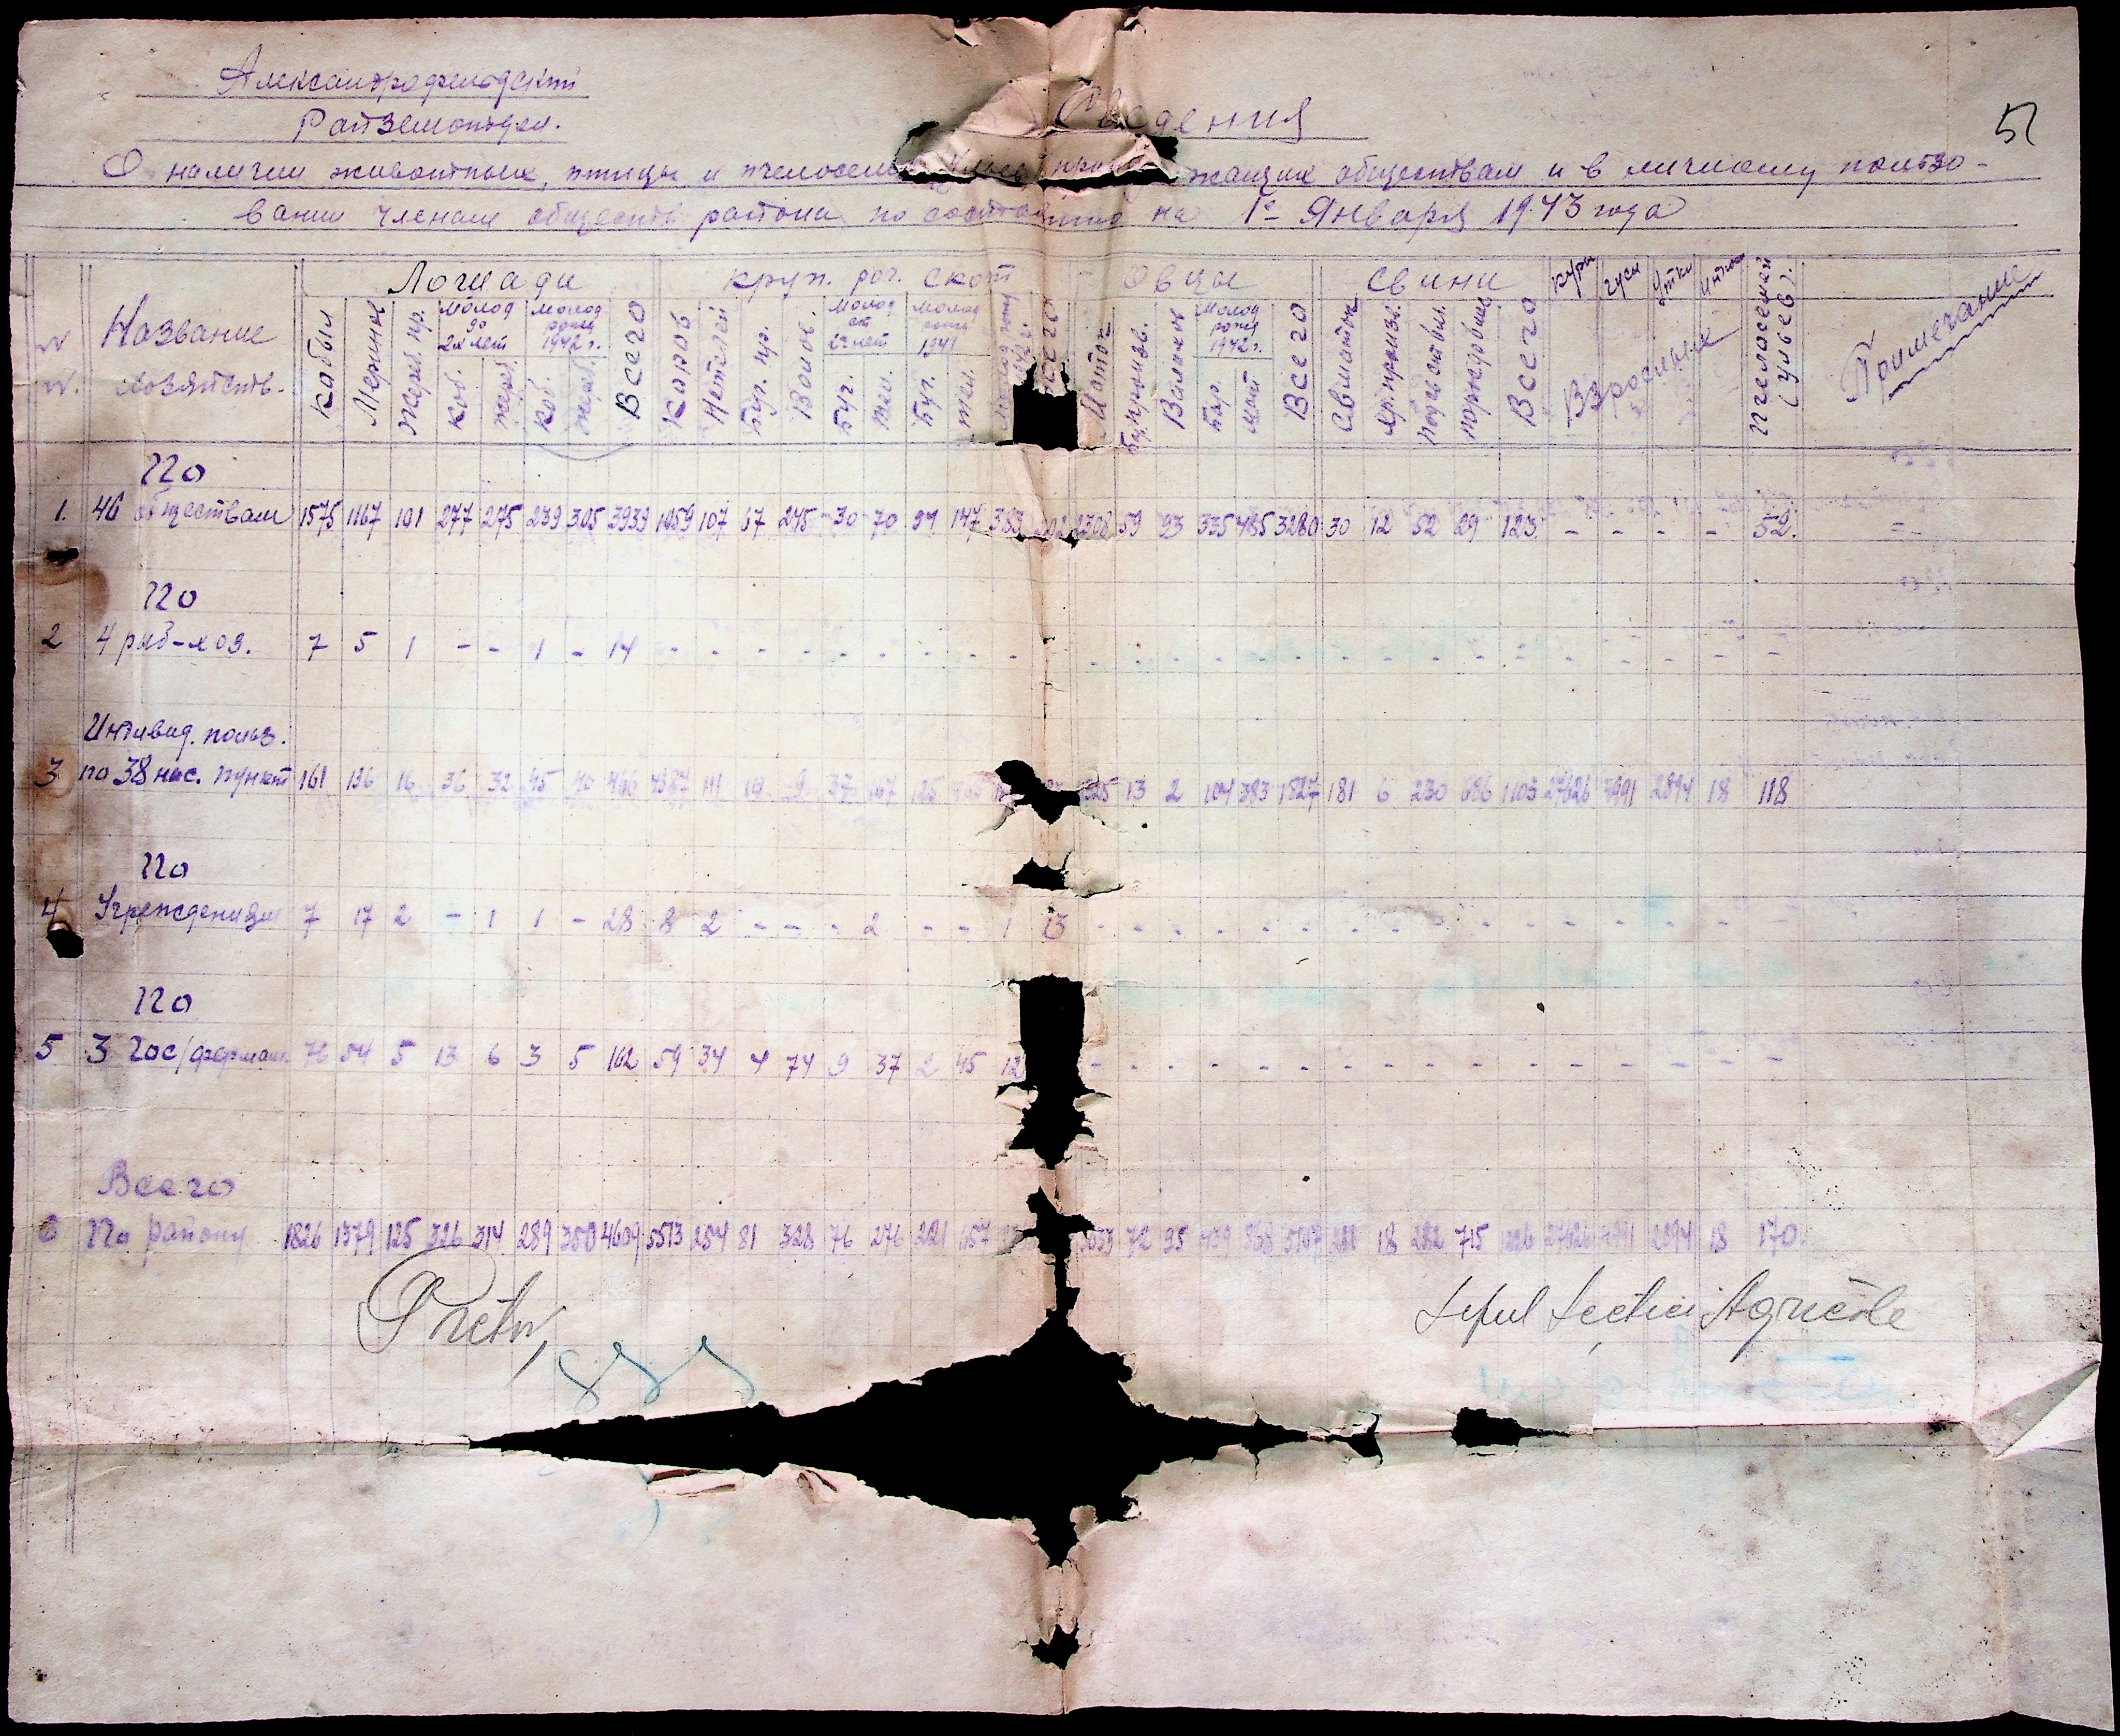 Александрофельдский
Райземотдел.
Сведения
51
О наличии животных, птицы и пчелосемей жащих обществам и в личному пользо-
вании членам обществ района, по состоянию на 1е Января 1943 года
Название хозяйств.
Лошади
круп. рог. скот
Овцы
свиньи
куры гуси утки
Взрослые
Пчелосемей (ульев).
Примечание
кобыл Мерин Жереб. пр. Молод до 2х лет коб. жереб. молод рожд 1942 г. коб. жереб. Всего
коров Нетелей Буг. пр. Волов. Молод от 2х лет Буг. тел. Молод рожд 1941 Буг. тел.
Маток Валахов Молод рожд 1942 г. Бар. Всего
Свиноматок Всего
По
1. 46 обществам 1575 1167 101 277 275 239 305 3939 1059 107 67 245 30 70 94 147 383 2308 59 93 335 485 3280 30 12 52 29 123 - - - - 52. =
По
2 4 рыб-хоз. 7 5 1 - - 1 - 14 - - - - - - - - - - - - - - - - - - - - - - - - -
Индивид. польз.
3 по 38 нас. пункт 161 136 16 36 32 45 40 466 4387 111 19 9 37 167 125 13 2 104 383 1827 181 6 230 686 1103 27626 7991 2894 18 118
По
4 Учреждениям 7 17 2 - 1 1 - 28 8 2 - - - 2 - - 1 13 - - - - - - - - - - - - - - -
По
5 3 Гос/фермам 76 54 5 13 6 3 5 162 59 34 4 74 9 37 2 45 12 - - - - - - - - - - - - - - - -
Всего
6 По району 1826 1379 125 326 314 289 350 4609 5513 254 81 328 76 276 221 72 95 439 868 5107 18 282 715 27626 7991 2894 18 170.
Pretor,
Șeful Secției Agricole